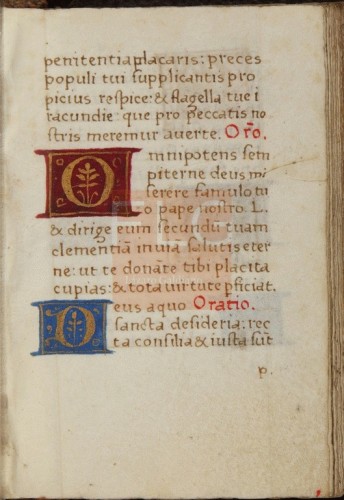 penitentia placaris: preces
populi tui supplicantis pro
picius respice: & flagella tue i
racundie que pro peccatis no
stris meremur averte. Oro.
Omnipotens sem
piterne deus mi
serere famulo tu
o pape nostro. L.
& dirige eum secundũ tuam
clementiã in viã salutis eter
ne: ut te donãte tibi placita
cupias: & tota virtute pficiat.
Deus a quo Oratio.
sancta desideria: rec
ta consilia & iusta sũt
p.